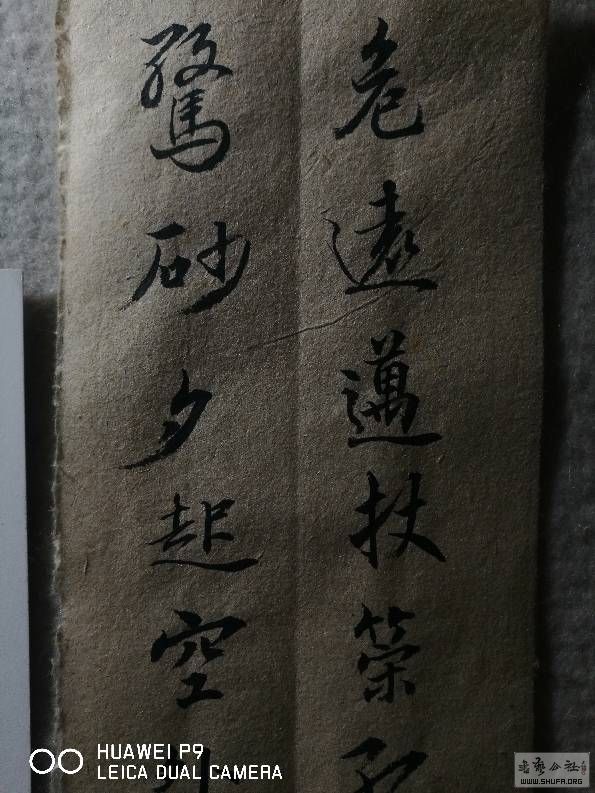 危遠邁杖策
驚砂夕起空
HUAWEI P9
LEICA DUAL CAMERA
書藝公社
WWW.SHUFA.ORG